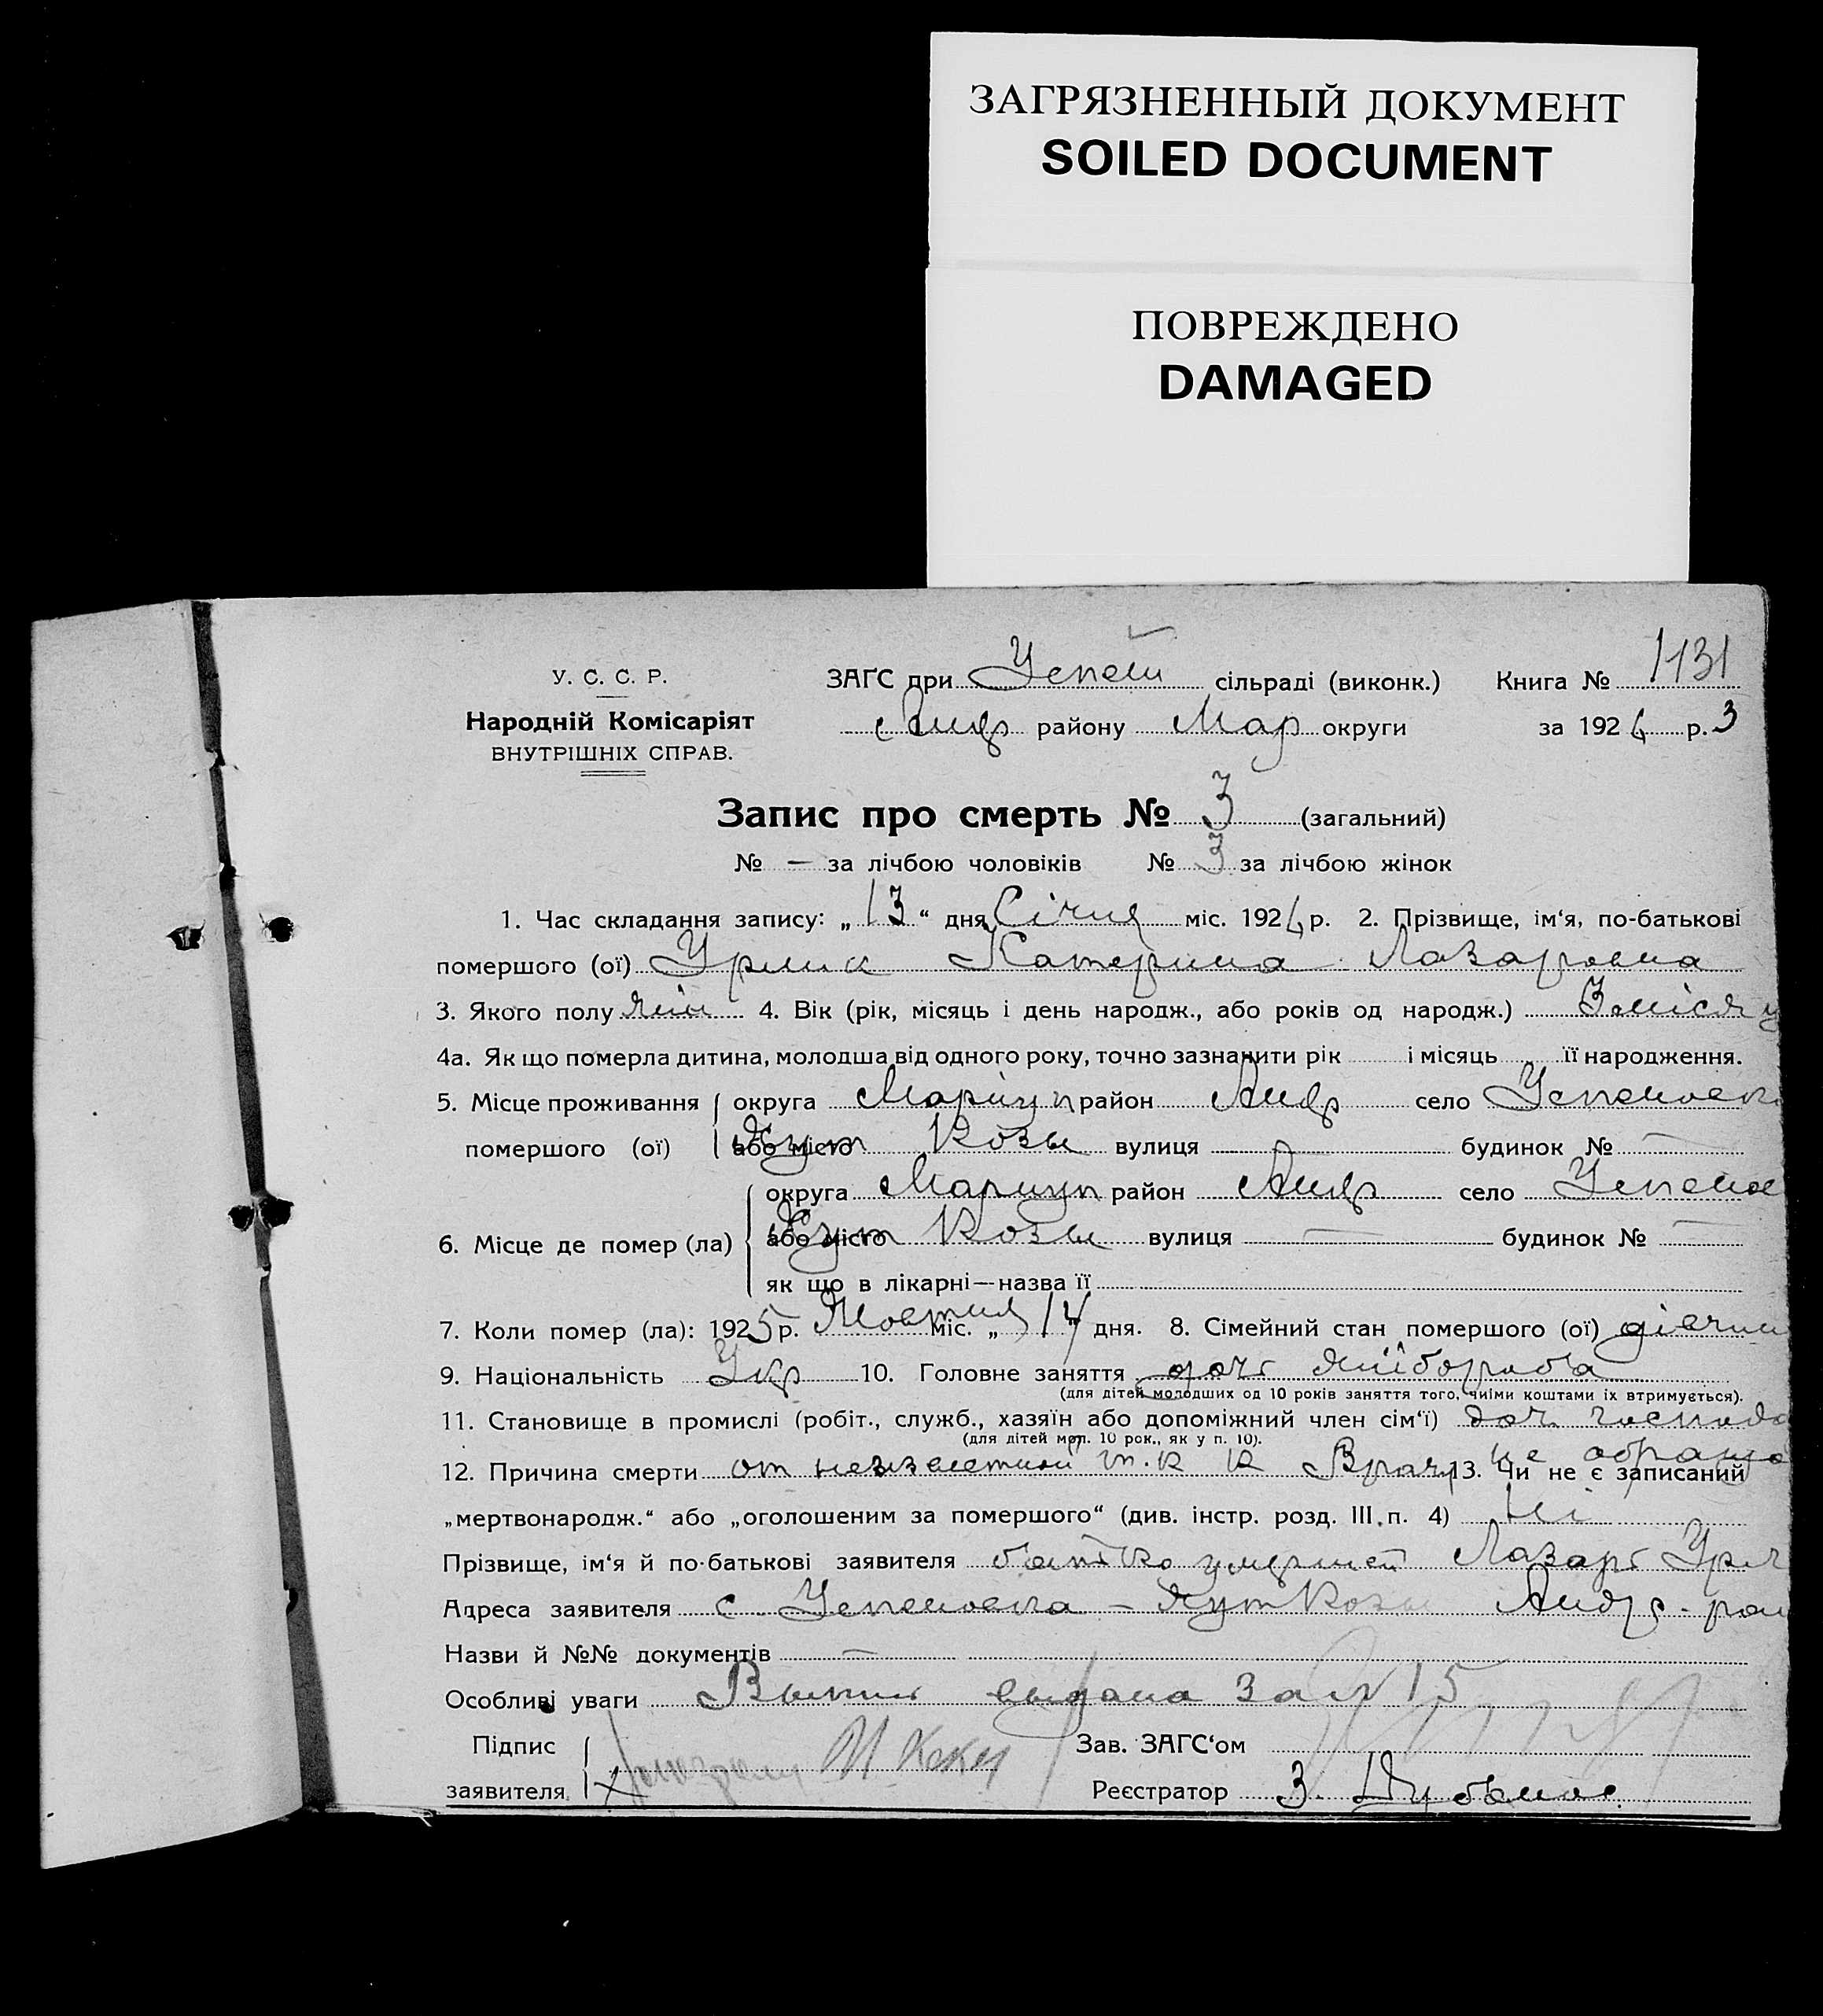 ЗАГРЯЗНЕННЫЙ ДОКУМЕНТ
SOILED DOCUMENT
ПОВРЕЖДЕНО
DAMAGED
1131
У. С. С. Р.
ЗАҐС при Успен сільраді (виконк.) Книга №
Народній Комісаріят
Андр району Мар округи за 1926 р. 3
ВНУТРІШНІХ СПРАВ.
Запис про смерть № 3 (загальний)
№ — за лічбою чоловіків № 3 за лічбою жінок
1. Час складання запису: „ 13 “ дня Січня міс. 1926 р. 2. Прізвище, ім‘я, по-батькові
помершого (ої) Катерина Лазаровна
3. Якого полу жін 4. Вік (рік, місяць і день народж., або років од народж.) 3 місяц
4а. Як що померла дитина, молодша від одного року, точно зазначити рік і місяць її народження.
5. Місце проживання округа Маріуп район Андр село Успеновка
помершого (ої) або місто Кут Козы вулиця — будинок № —
округа Мариуп район Андр село Успено
6. Місце де помер (ла) або місто Кут Козы вулиця — будинок № —
як що в лікарні—назва її
7. Коли помер (ла): 1925 р. Жовтня міс. „ 14 “ дня. 8. Сімейний стан помершого (ої) дівчин
9. Національність Укр 10. Головне заняття дочь хлібороба
(для дітей молодших од 10 років заняття того, чиїми коштами їх втримується).
11. Становище в промислі (робіт., служб., хазяїн або допоміжний член сім‘ї) доч господа
(для дітей мол. 10 рок., як у п. 10).
12. Причина смерти от неизвестной т.к к Врачу не обраща 13. Чи не є записаний
„мертвонародж.“ або „оголошеним за помершого“ (див. інстр. розд. III, п. 4) Ні
Прізвище, ім‘я й по-батькові заявителя батько умершей Лазарь
Адреса заявителя с Успеновка — Кут Козы Андр - рай
Назви й №№ документів —
Особливі уваги выдана за № 15
Підпис
заявителя
Зав. ЗАҐС‘ом
Реєстратор З.